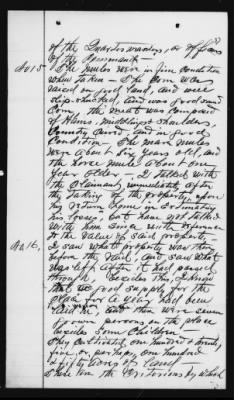 of the Quartermasters, or officers
of the Command.—
No 15— The mules were in fine condition
when taken— The corn was
raised on good land, and were
slip-shucked, and was good sound
corn, the meat was composed
of Hams, middlings & shoulders,
Country cured, and in good
condition— The mare mule
was about six years old, and
the horse mule about one
year older— I talked with
the Claimant, immediately after
the taking of the property, upon
his return home, in Estimating
his losses, but have not talked
with him since with reference
to the value of said property—
No 16, I saw what property was there
before the raid, and saw what
was left after it had passed
through. Because this, I know
that a good supply for the
place for a year had been
laid in, and there were seven
grown persons on the place
besides some children—
They cultivated one hundred & twenty
five, or perhaps one hundred
& fifty acres of land—
There were the Territories by which